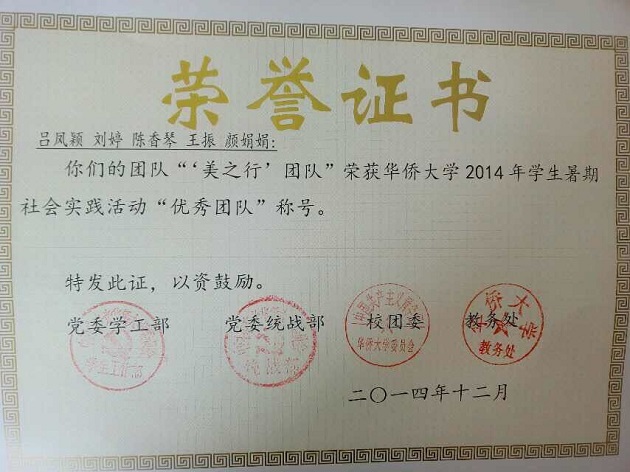 荣誉证书
吕凤颖 刘婷 陈香琴 王振 颜娟娟:
你们的团队“‘美之行’团队”荣获华侨大学2014年学生暑期
社会实践活动“优秀团队”称号。
特发此证，以资鼓励。
党委学工部 党委统战部 校团委 教务处
华侨大学委员会
教务处
二〇一四年十二月